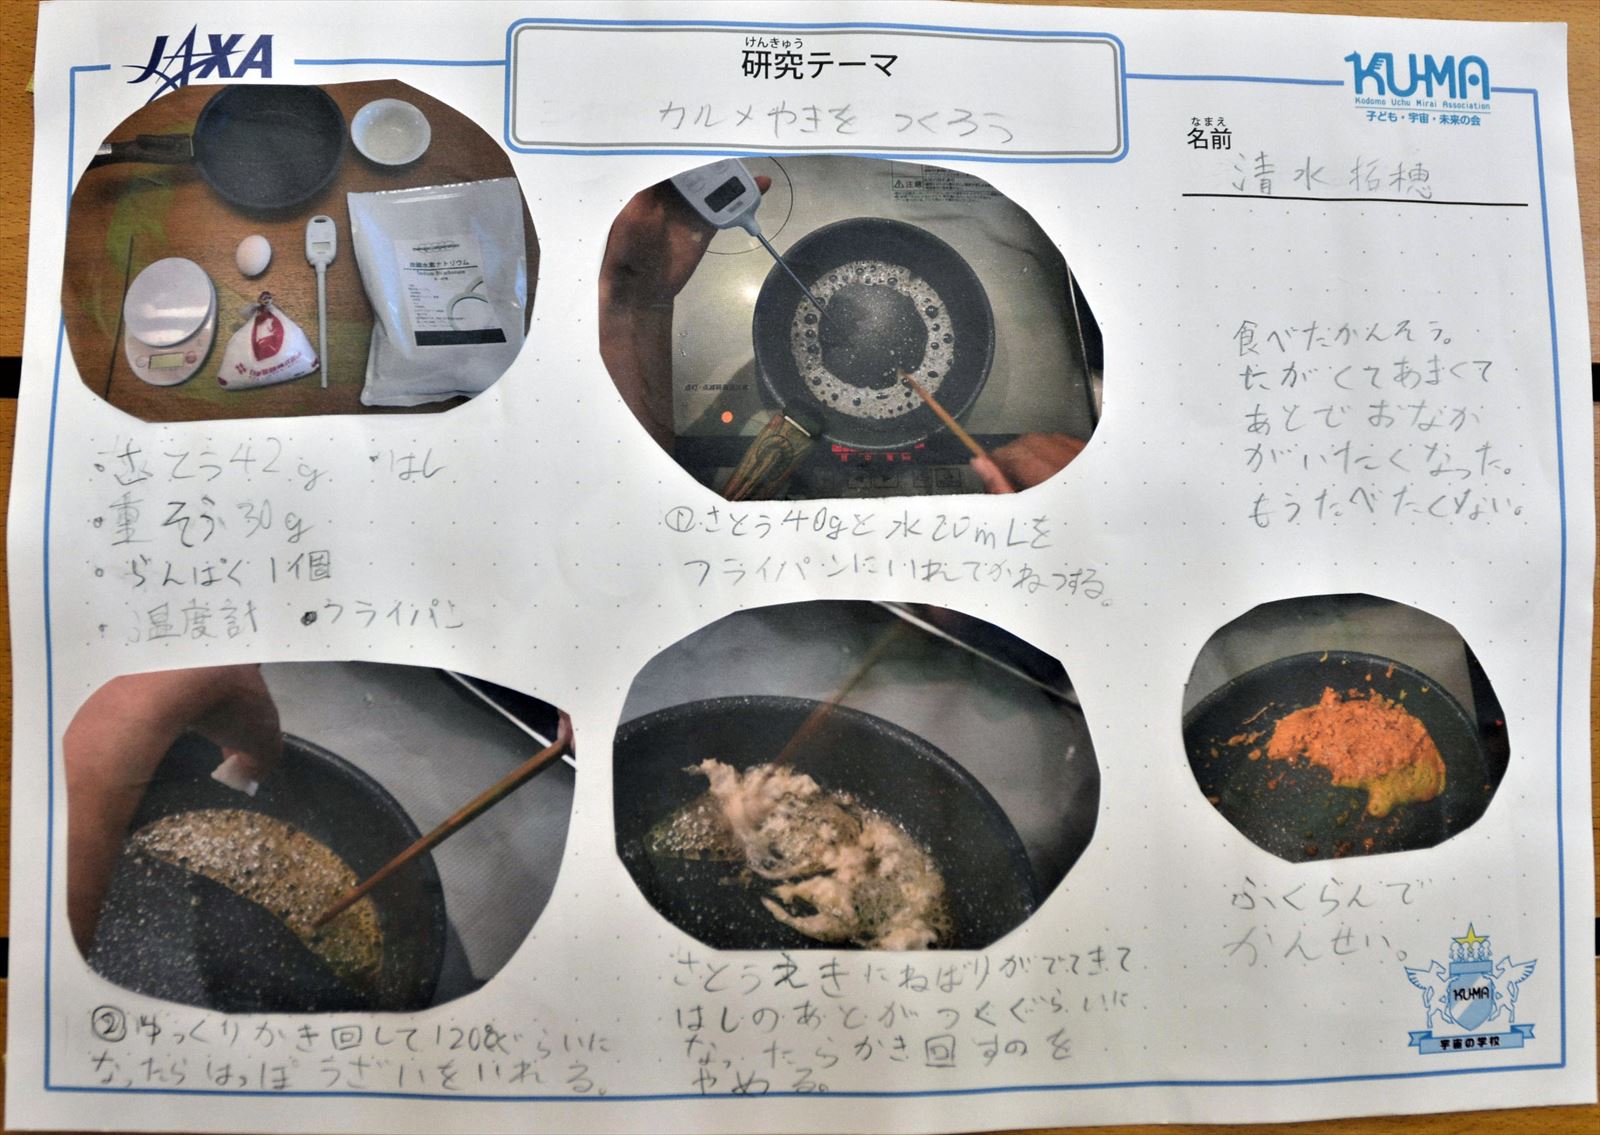 JAXA
けんきゅう
研究テーマ
カルメやきを つくろう
KU-MA
Kodomo Uchu Mirai Association
子ども・宇宙・未来の会
なまえ
名前
清水拓穂
炭酸水素ナトリウム
・さとう42g ・はし
・重そう30g
・らんぱく1個
・温度計 ・フライパン
注意
①さとう40gと水20mLを
フライパンにいれてかねつする。
食べたかんそう。
たがくてあまくて
あとでおなか
がいたくなった。
もうたべたくない。
②ゆっくりかき回して120℃ぐらいに
なったらはっぽうざいをいれる。
さとうえきにねばりがでてきて
はしのあとがつくぐらいに
なったらかき回すのを
やめる。
ふくらんで
かんせい。
KU-MA
宇宙の学校